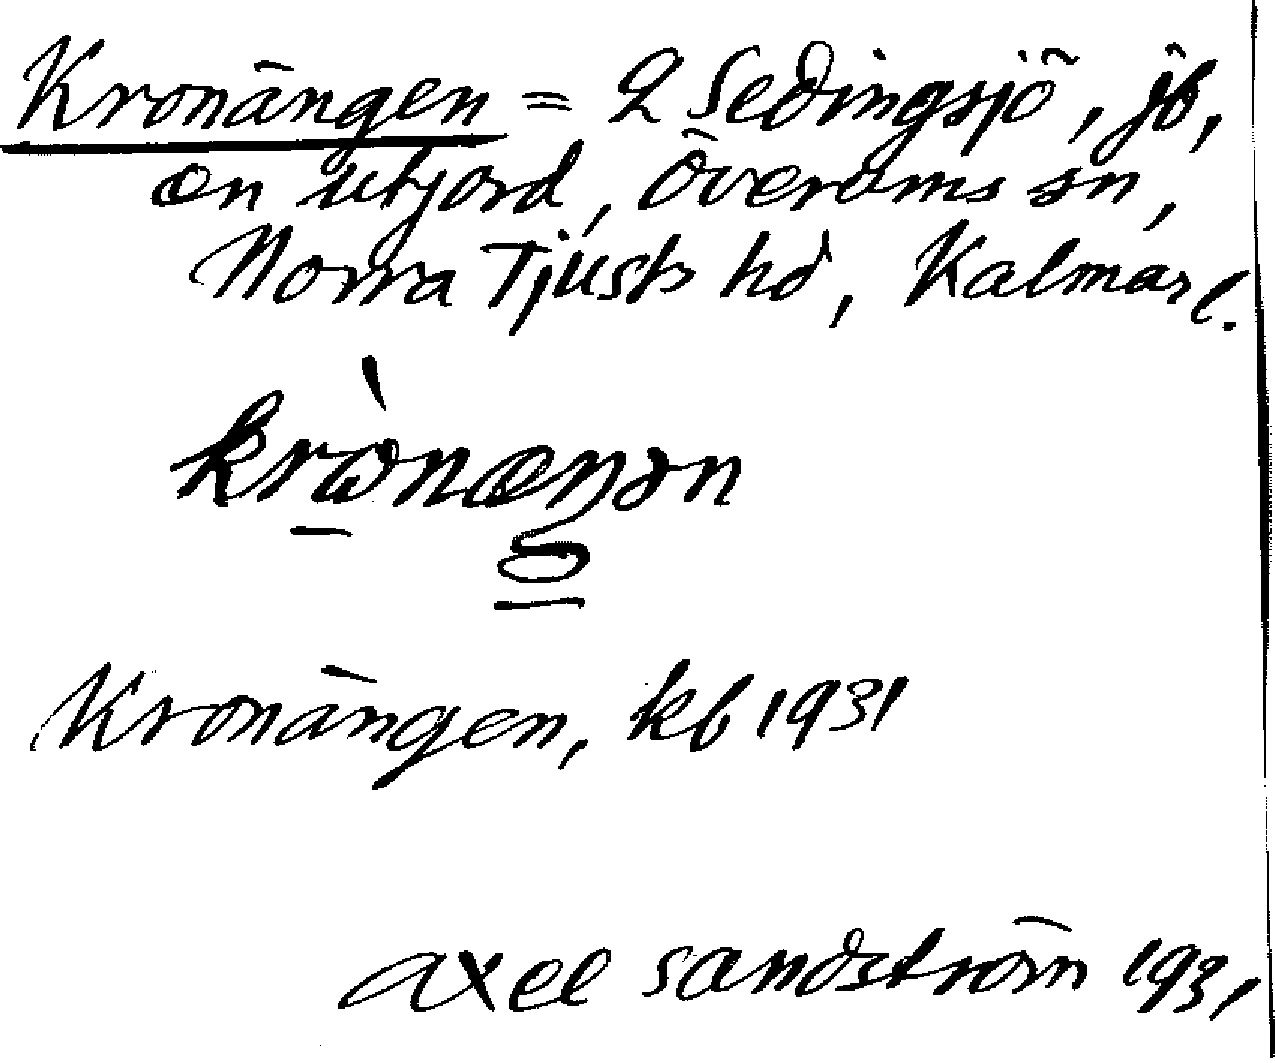 Kronängen = 2 Sedingsjö, jb,
en utjord, Överums sn,
Norra Tjusts hd, Kalmar l.
krὼnæŋən
Kronängen, kb 1931
Axel Sandström 1931